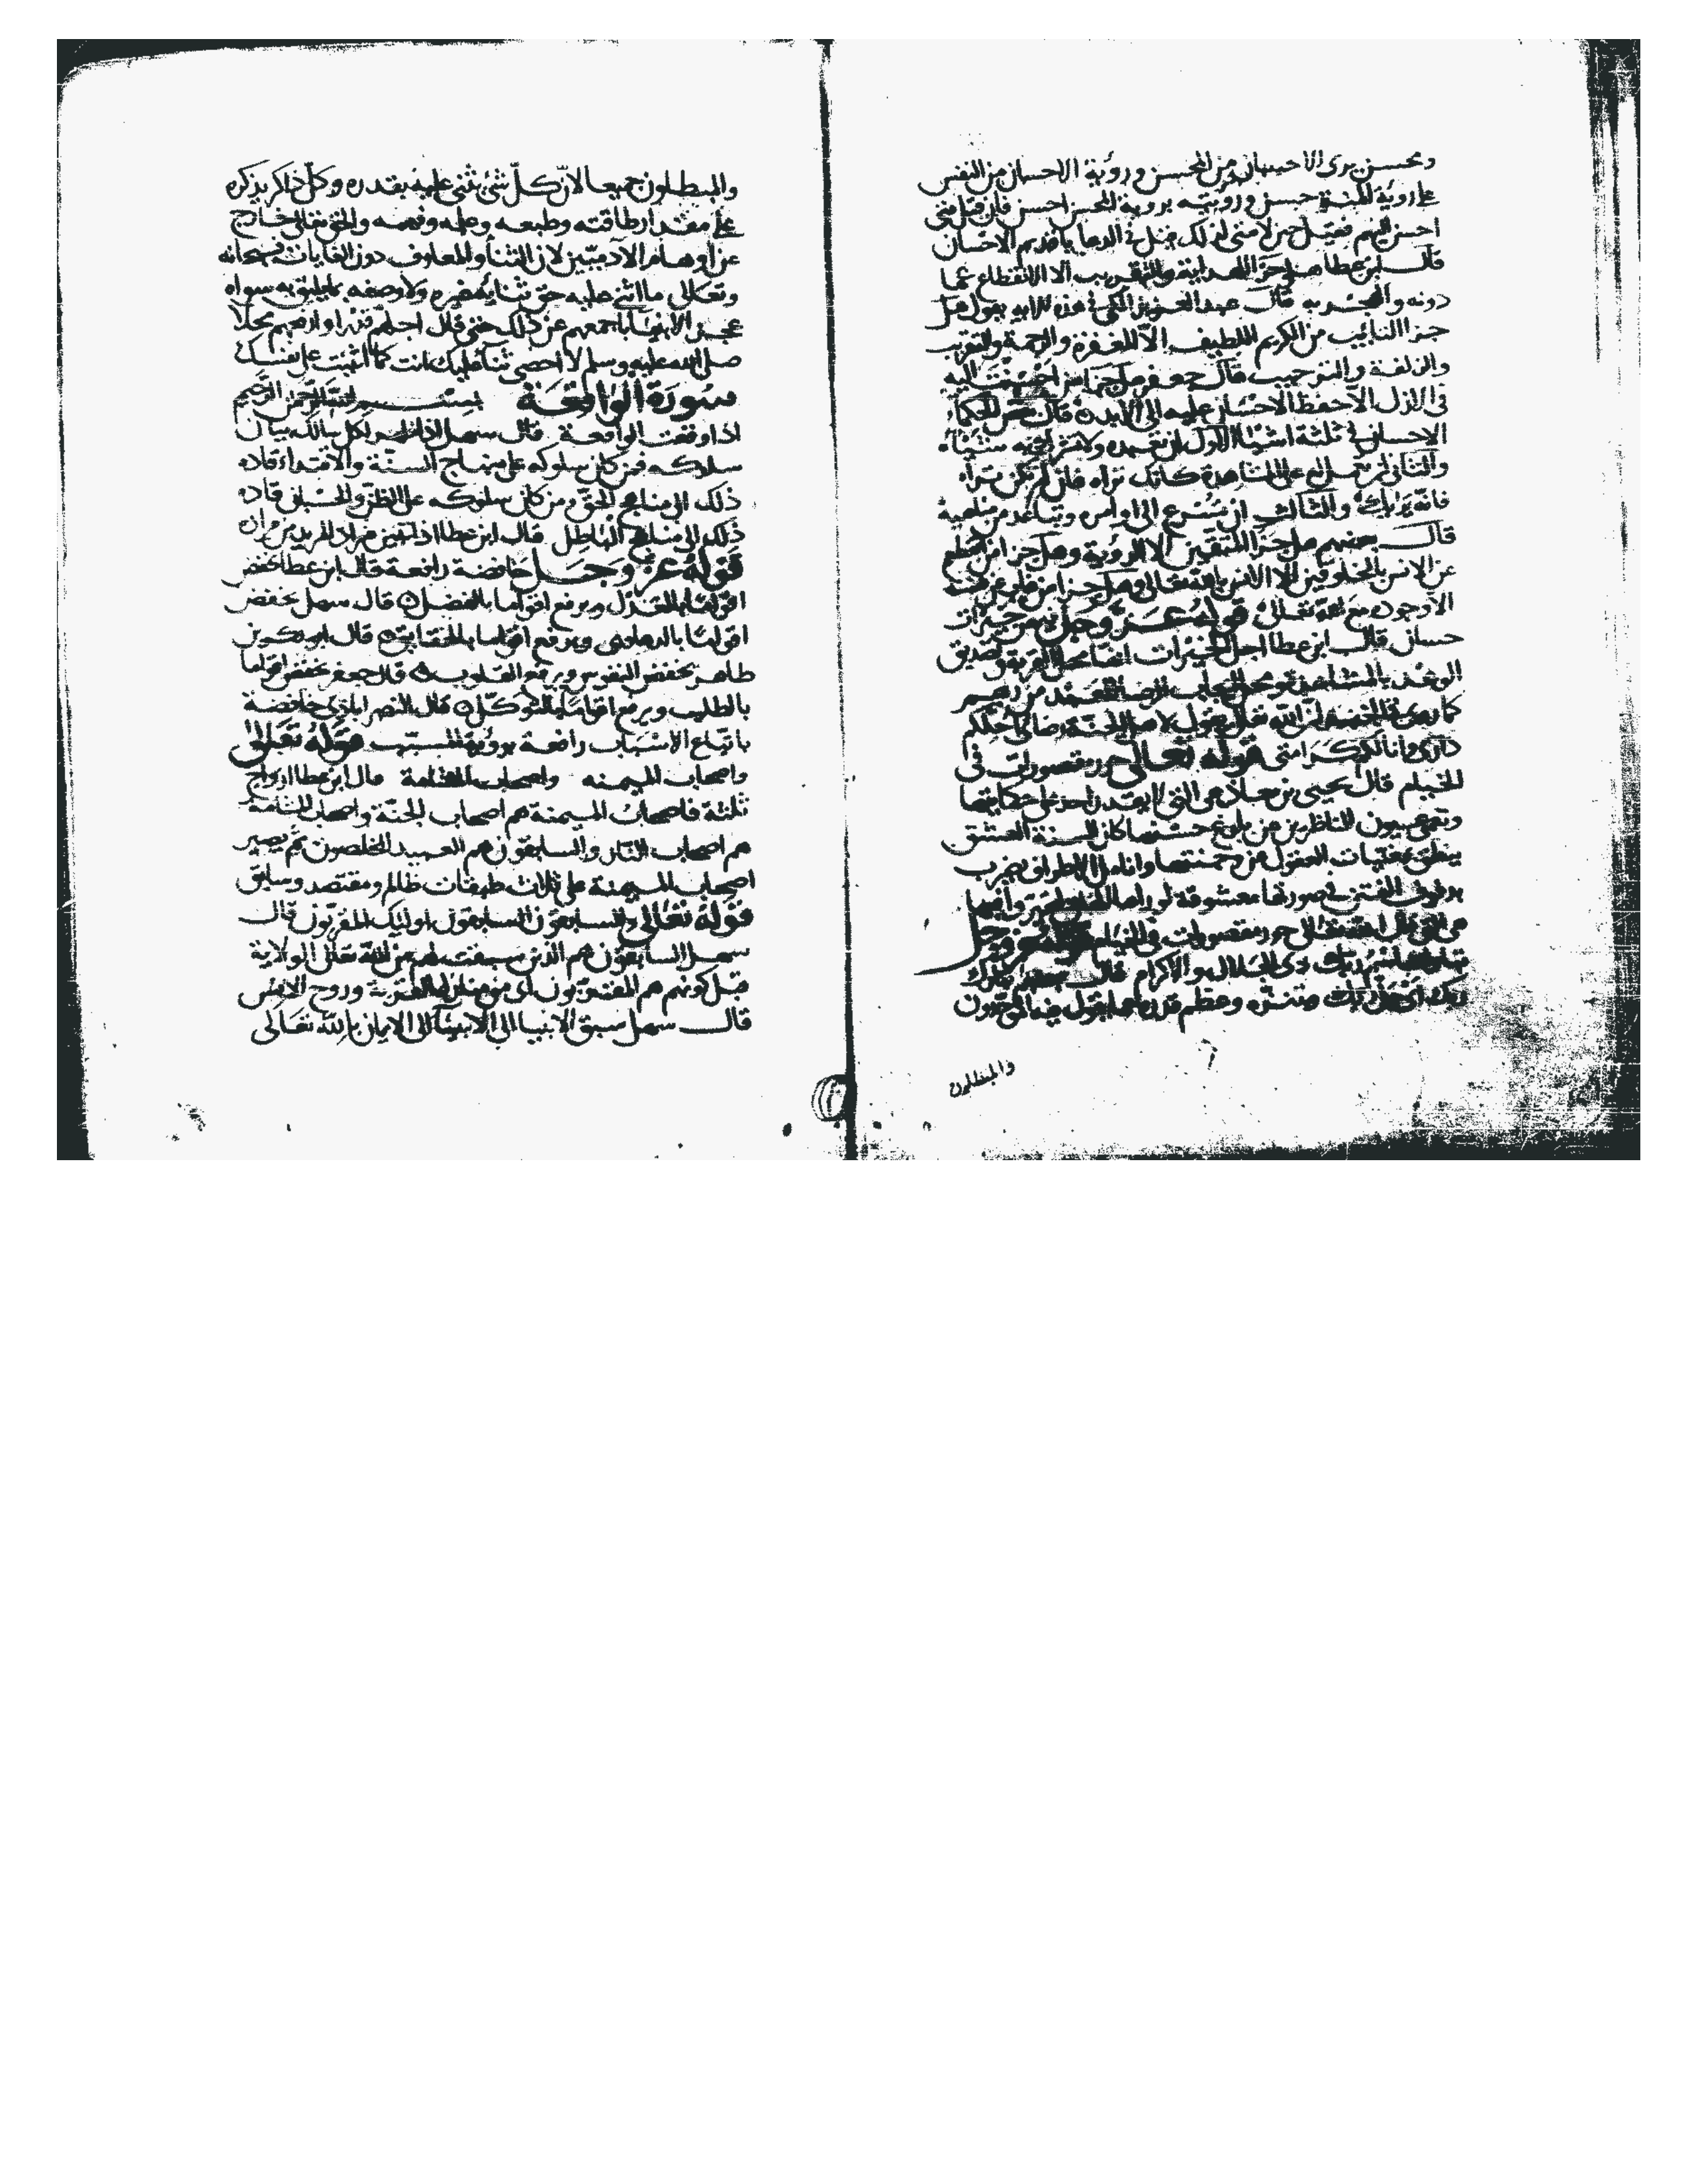 ومحسن يرى الاحسان من المحسن ورؤية الاحسان من النفس
على رؤية المنة حسن ورؤيته برؤية المحسن احسن فان قيل متى
احسن اليهم فقيل حين لا متى لذلك قيل في الدعا يا قديم الاحسان
قال ابن عطا هل جزا الهداية والتقريب الا الانقطاع عما
دونه والتجرد به قال عبد العزيز المكي في هذه الاية يقول هل
جزا التائب من الكريم اللطيف الا المغفرة والرحمة والتقريب
والزلفة والترحيب قال جعفر هل جزا من احسنت اليه
في الازل الا حفظ الاحسان عليه الى الابد قال بعض الحكماء
الاحسان في ثلثة اشياء الاول ان تعبده ولا تشرك به شيئا
والثاني ان تعمل له على المشاهدة كانك تراه فان لم تكن تراه
فانه يراك والثالث ان تسرع الى اوامره وتباعد من مناهيه
قال بعضهم هل جزا المتقين الا الرؤية وهل جزا من انقطع
عن الانس بالمخلوقين الا الانس بالله تعالى وهل جزا من فنى عن نفسه
الا وجوده مع الله تعالى قوله عز وجل فيهن خيرات
حسان قال ابن عطا اجل الخيرات
الوعد بالمشاهدة ومحل من ربهم
كما روى في الخبر ان الله تعالى يقول لاهل الجنة رضائي احلكم
داري وانالكم كرامتي قوله تعالى حور مقصورات في
الخيام قال يحيى بن معاذ هي التي لا يقدر احد على حكايتها
وتعمى عيون الناظرين عن بلوغ حسنها كان السنة العشق
ينطق مغنيات العقول من وانامل الاطراق يضرب
بدفوف الفتن صورتها معشوقة
هي التي قال الله تعالى حور مقصورات في الخيام قوله عز وجل
تبارك اسم ربك ذي الجلال والاكرام قال بعضهم تبارك
ربك اي جل ربك وتنزه وعظم قدره عما يقول فيه الموحدون
والمبطلون
والمبطلون جميعا لان كل شئ يثنى عليه بقدره وكل ذاكر يذكره
على مقدار طاقته وطبعه وعلمه وفهمه والحق تعالى خارج
عن اوهام الآدميين لان الثنا والمعارف دون الغايات سبحانه
وتعالى ما اثنى عليه حق ثنايه غيره ولا وصفه بما يليق به سواه
عجز الانبيا باجمعهم عن ذلك حتى قال اجلهم قدرا وارفعهم محلا
صلى الله عليه وسلم لا احصى ثنا عليك انت كما اثنيت على نفسك
سورة الواقعة بسم الله الرحمن الرحيم
اذا وقعت الواقعة قال سهل اذا ظهر لكل سالك بيان
سلوكه فمن كان سلوكه على منهاج السنة والاقتداء قاده
ذلك الى مناهج الحق ومن كان سلوكه على الظن والحسبان قاده
ذلك الى مناهج الباطل قال ابن عطا اذا تبين مراد المريد من مراده
قوله عز وجل خافضة رافعة قال ابن عطا يخفض
اقواما بالعدل ويرفع اقواما بالفضل قال سهل يخفض
اقواما بالدعاوى ويرفع اقواما بالحقايق قال ابو بكر بن
طاهر يخفض النفوس ويرفع القلوب قال جعفر يخفض اقواما
بالطلب ويرفع اقواما بالتوكل قال النصراباذي خافضة
باتباع الاسباب رافعة برؤية المسبب قوله تعالى
واصحاب الميمنه واصحاب المشامة قال ابن عطا ازواج
ثلثة فاصحاب الميمنة هم اصحاب الجنة واصحاب المشامة
هم اصحاب النار والسابقون هم العبيد المخلصون ثم يصير
اصحاب الميمنة على ثلاث طبقات ظالم ومقتصد وسابق
قوله تعالى والسابقون السابقون اوليك المقربون قال
سهل السابقون هم الذين سبقت لهم من الله تعالى الولاية
قبل كونهم هم المقربون اي من منازل القربة وروح الانس
قال سهل سبق الانبيا الى الايمان بالله تعالى